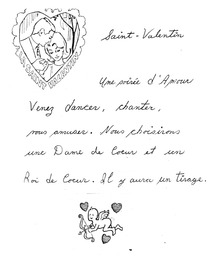 Saint-Valentin
Une soirée d'Amour
Venez dancer, chanter,
vous amuser. Nous choisirons
une Dame de Coeur et un
Roi de Coeur. Il y aura un tirage.